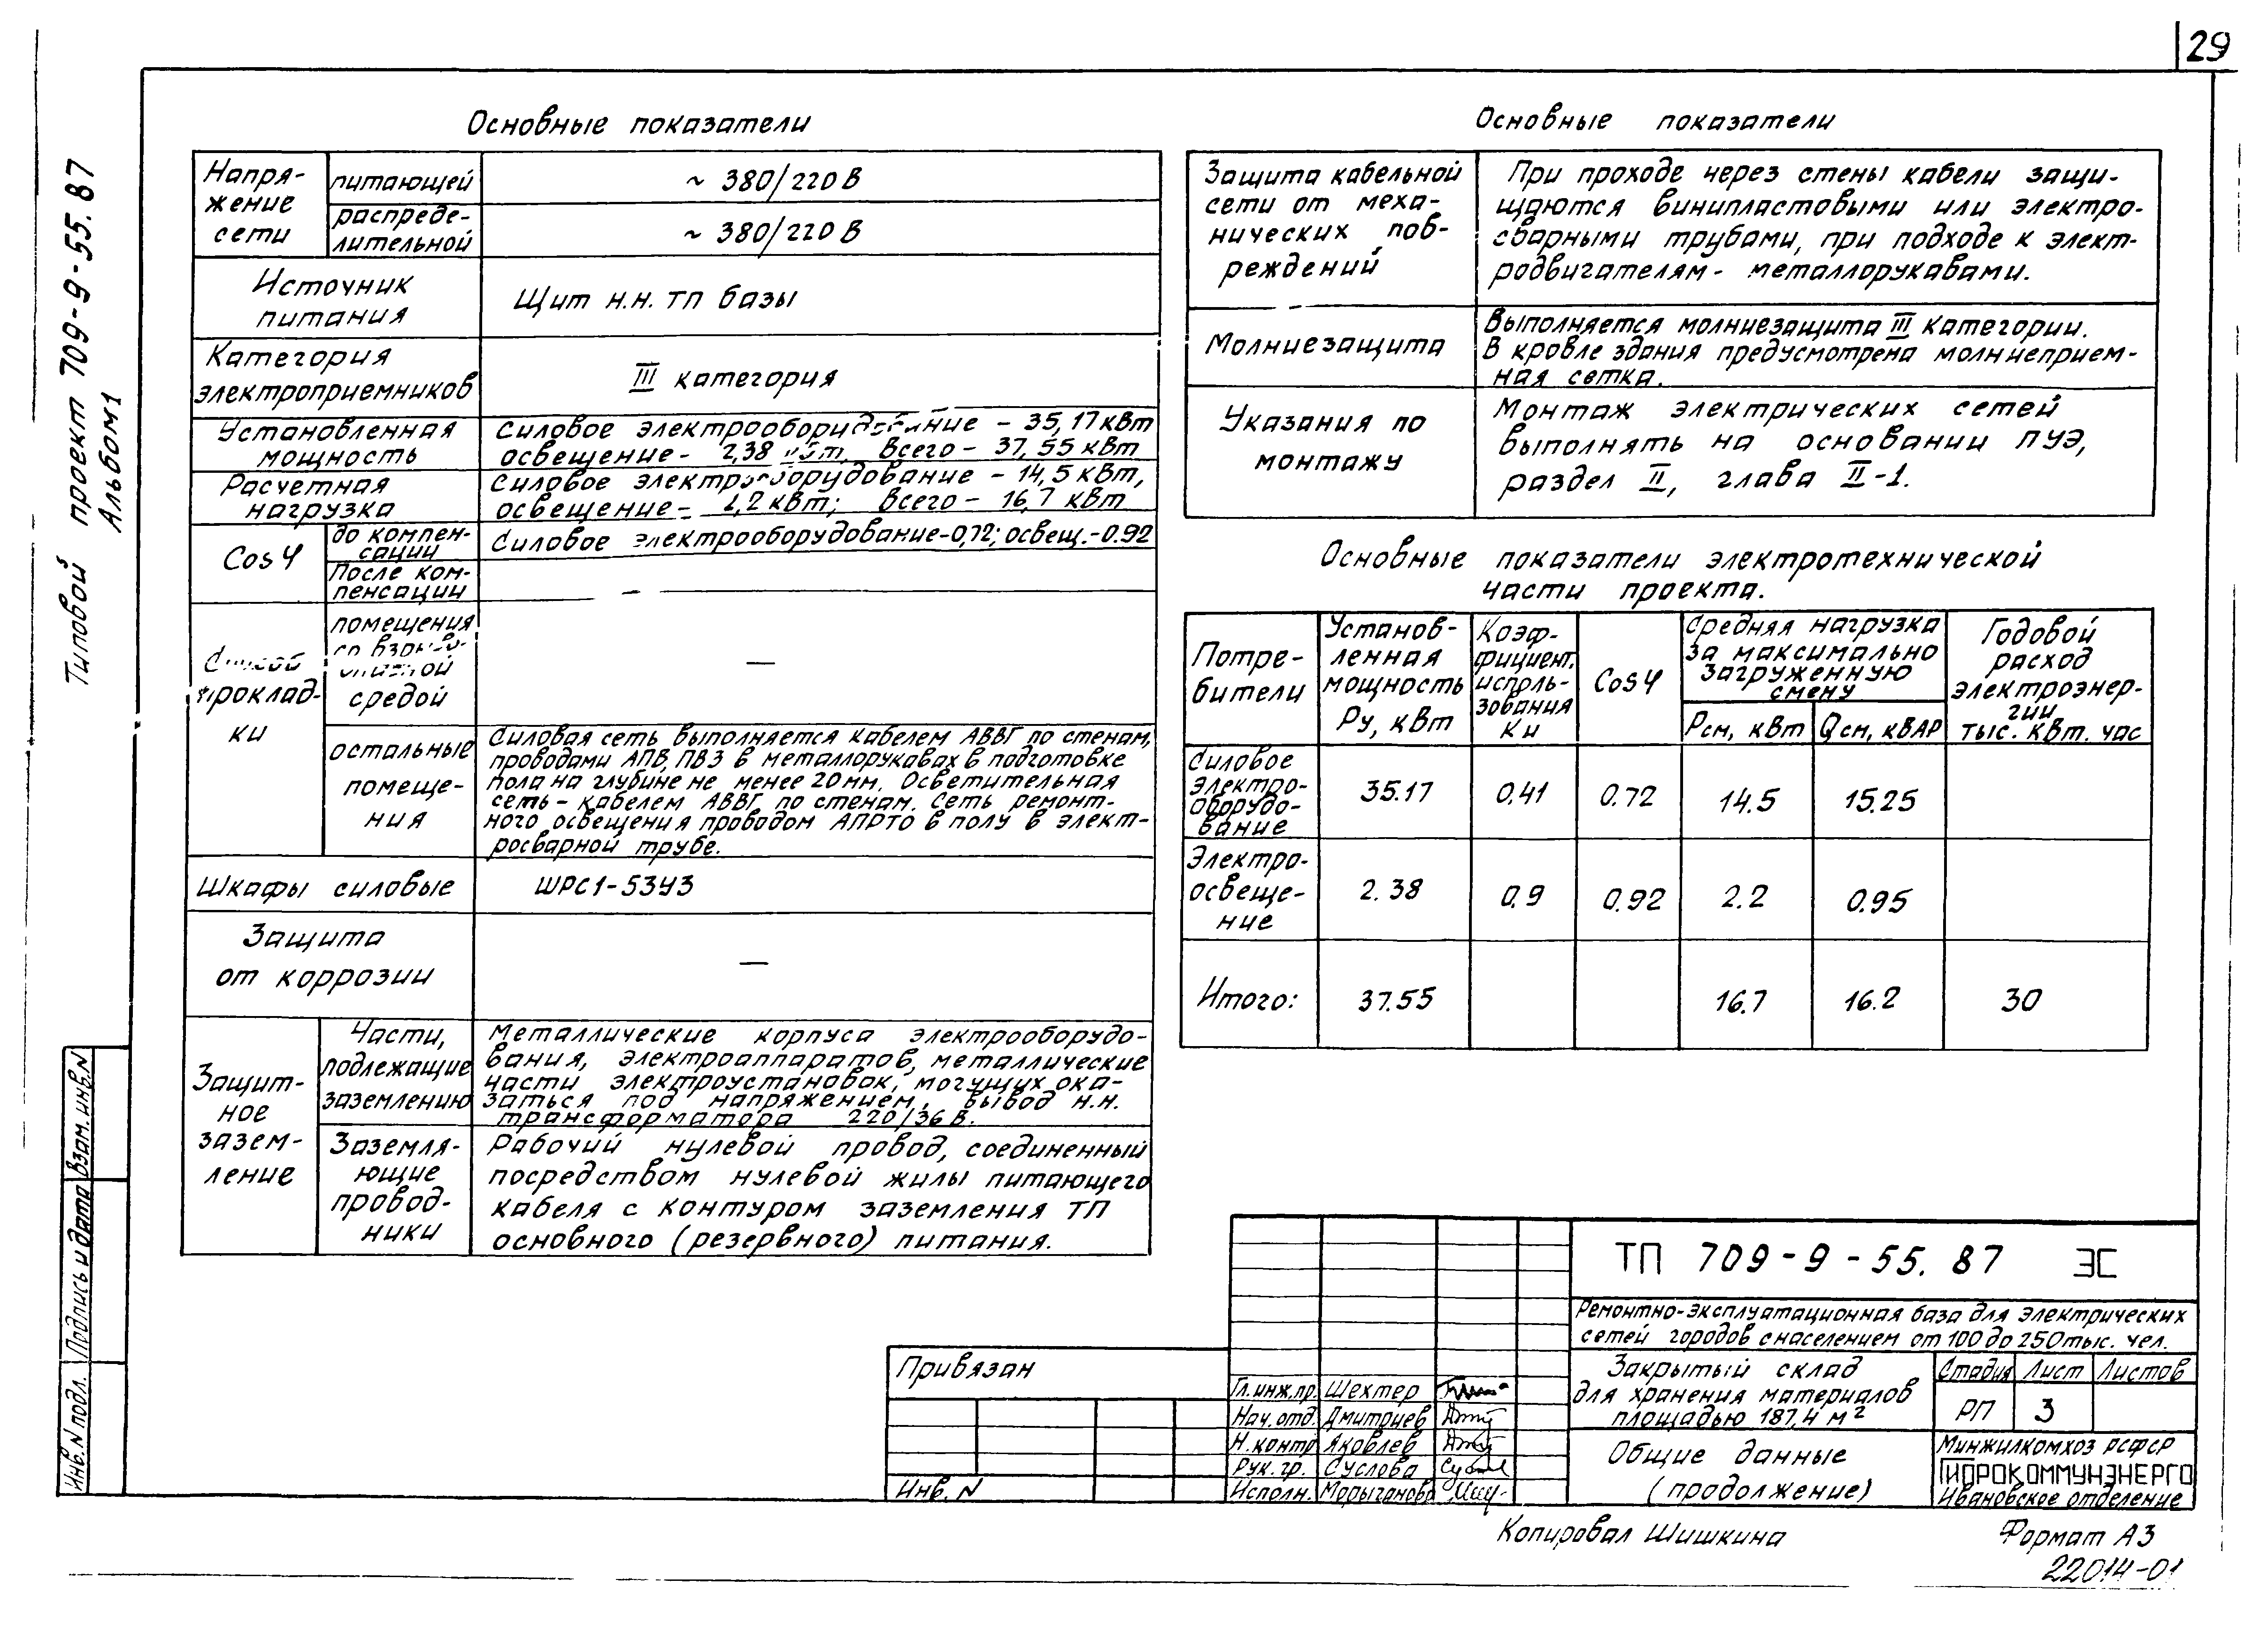 29
Типовой проект 709-9-55.87
Альбом 1
Основные показатели
Напря-
жение
сети
питающей
~ 380/220 В
распреде-
лительной
~ 380/220 В
Источник
питания
Щит н.н. ТП базы
Категория
электроприемников
III категория
Установленная
мощность
Силовое электрооборудование - 35,17 кВт
освещение - 2,38 кВт, Всего - 37,55 кВт
Расчетная
нагрузка
Силовое электрооборудование - 14,5 кВт,
освещение - 2,2 кВт; Всего - 16,7 кВт
Cos φ
до компен-
сации
Силовое электрооборудование-0,72; освещ.-0.92
После ком-
пенсации
—
Способ
проклад-
ки
помещения
со взрыво-
опасной
средой
—
остальные
помеще-
ния
Силовая сеть выполняется кабелем АВВГ по стенам,
проводами АПВ, ПВ3 в металлорукавах в подготовке
пола на глубине не менее 20мм. Осветительная
сеть - кабелем АВВГ по стенам. Сеть ремонт-
ного освещения проводом АПРТО в полу в элект-
росварной трубе.
Шкафы силовые
ШРС1-53У3
Защита
от коррозии
—
Защит-
ное
зазем-
ление
Части,
подлежащие
заземлению
Металлические корпуса электрооборудо-
вания, электроаппаратов, металлические
части электроустановок, могущих ока-
заться под напряжением, вывод н.н.
трансформатора 220/36 В.
Заземля-
ющие
провод-
ники
Рабочий нулевой провод, соединенный
посредством нулевой жилы питающего
кабеля с контуром заземления ТП
основного (резервного) питания.
Основные показатели
Защита кабельной
сети от меха-
нических пов-
реждений
При проходе через стены кабели защи-
щаются винипластовыми или электро-
сварными трубами, при подходе к элект-
родвигателям - металлорукавами.
Молниезащита
Выполняется молниезащита III категории.
В кровле здания предусмотрена молниеприем-
ная сетка.
Указания по
монтажу
Монтаж электрических сетей
выполнять на основании ПУЭ,
раздел II, глава II-1.
Основные показатели электротехнической
части проекта.
Потре-
бители
Установ-
ленная
мощность
Ру, кВт
Коэф-
фициент.
исполь-
зования
Ки
Cos φ
Средняя нагрузка
за максимально
загруженную
смену
Рсм, кВт
Qсм, кВАР
Годовой
расход
электроэнер-
гии
тыс. кВт. час
Силовое
электро-
оборудо-
вание
35.17
0.41
0.72
14.5
15.25
Электро-
освеще-
ние
2.38
0.9
0.92
2.2
0.95
Итого:
37.55
16.7
16.2
30
Взам. инв. N
Подпись и дата
Инв. N подл.
Привязан
Инв. N
Гл. инж.пр. Шехтер
Нач. отд. Дмитриев
Н. контр Яковлев
Рук. гр. Суслова
Исполн. Марыганова
ТП 709-9-55.87 ЭС
Ремонтно-эксплуатационная база для электрических
сетей городов с населением от 100 до 250 тыс. чел.
Закрытый склад
для хранения материалов
площадью 187,4 м2
Стадия Лист Листов
РП 3
Общие данные
(продолжение)
Минжилкомхоз РСФСР
ГИПРОКОММУНЭНЕРГО
Ивановское отделение
Копировал Шишкина
Формат А3
22014-01